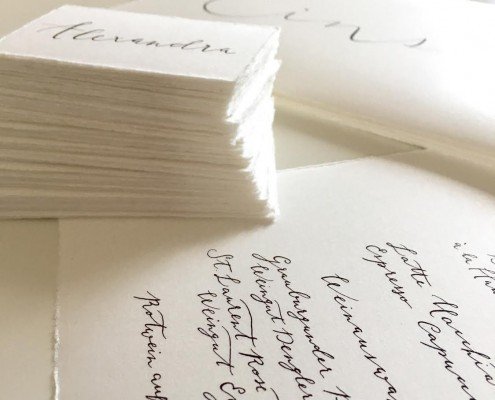 Alexandra
Eins
à la
Latte Macchi
Espresso Capuc
Weinauswa
Grauburgunder
Weingut Dengler
St. Laurent Rosé
Weingut
Rotwein auf